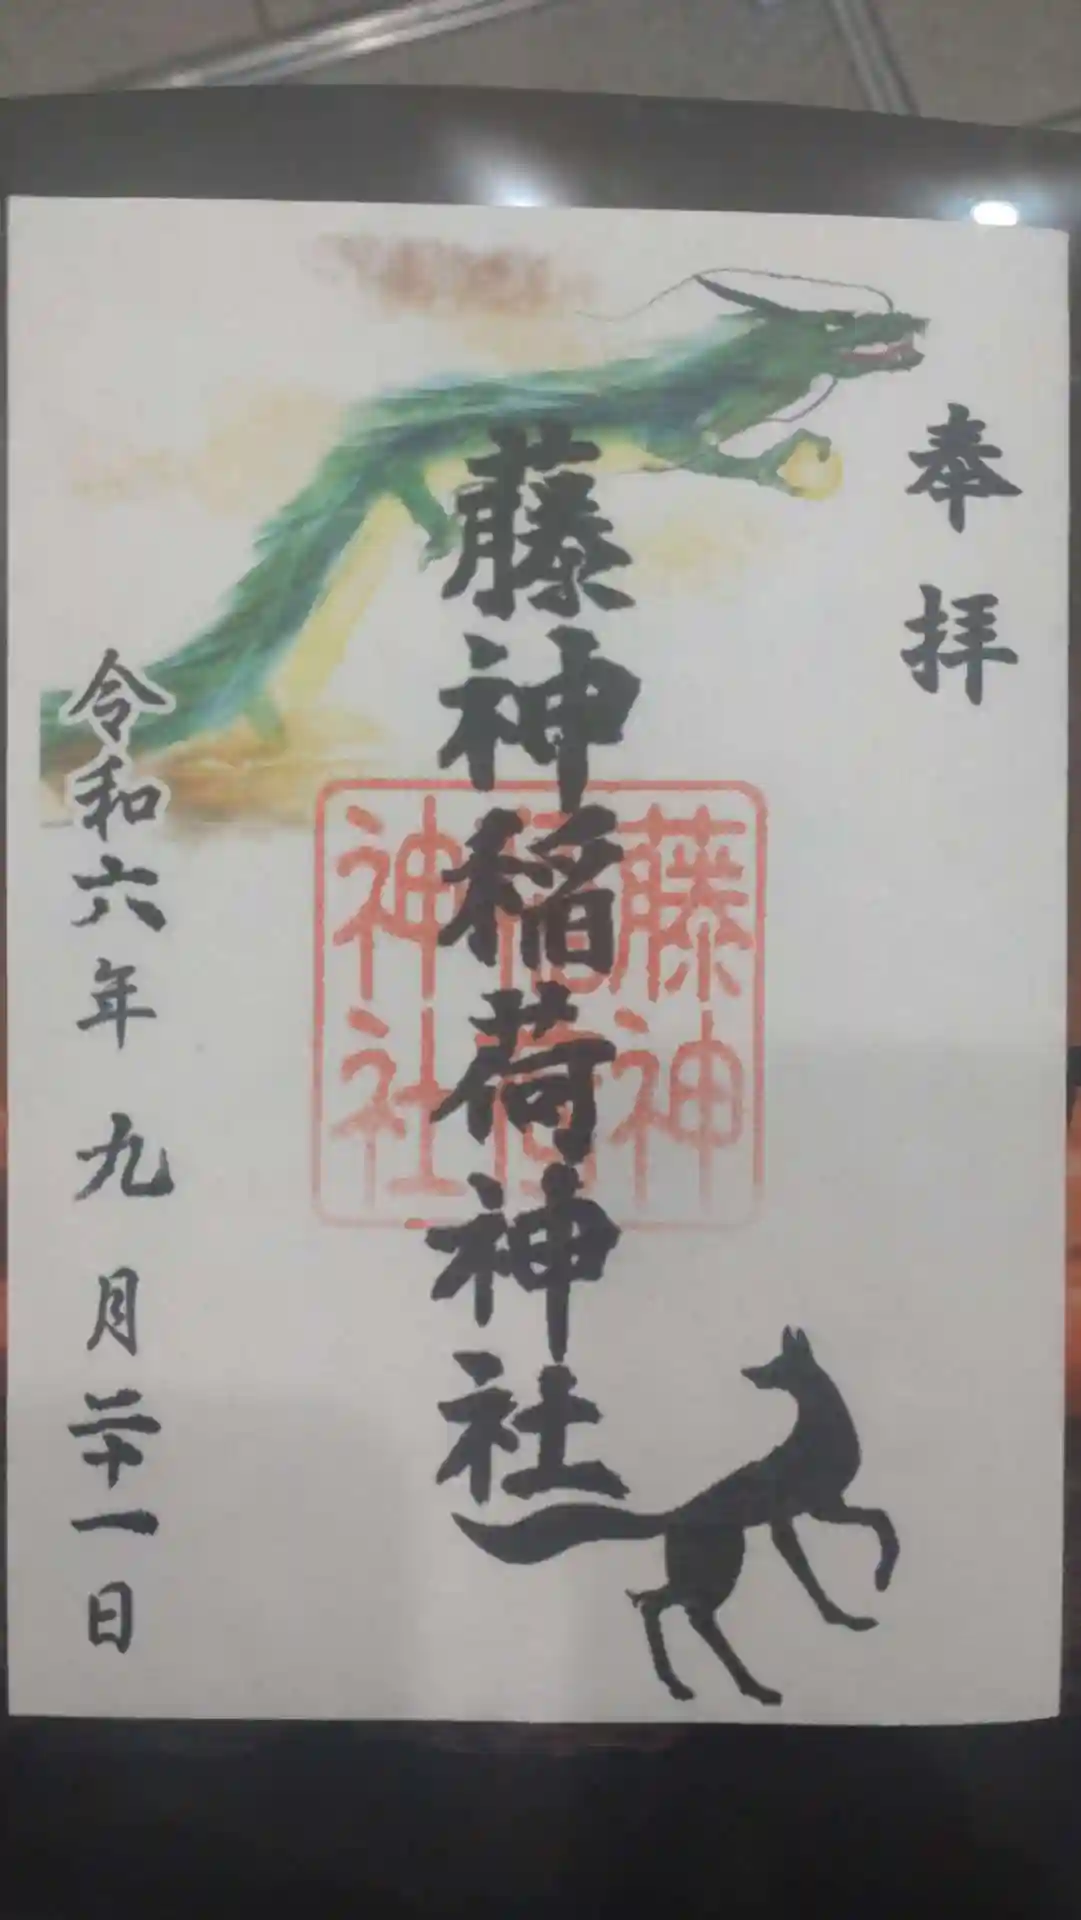 奉拝
藤神稲荷神社
藤神
稲荷
神社
令和六年九月廿一日